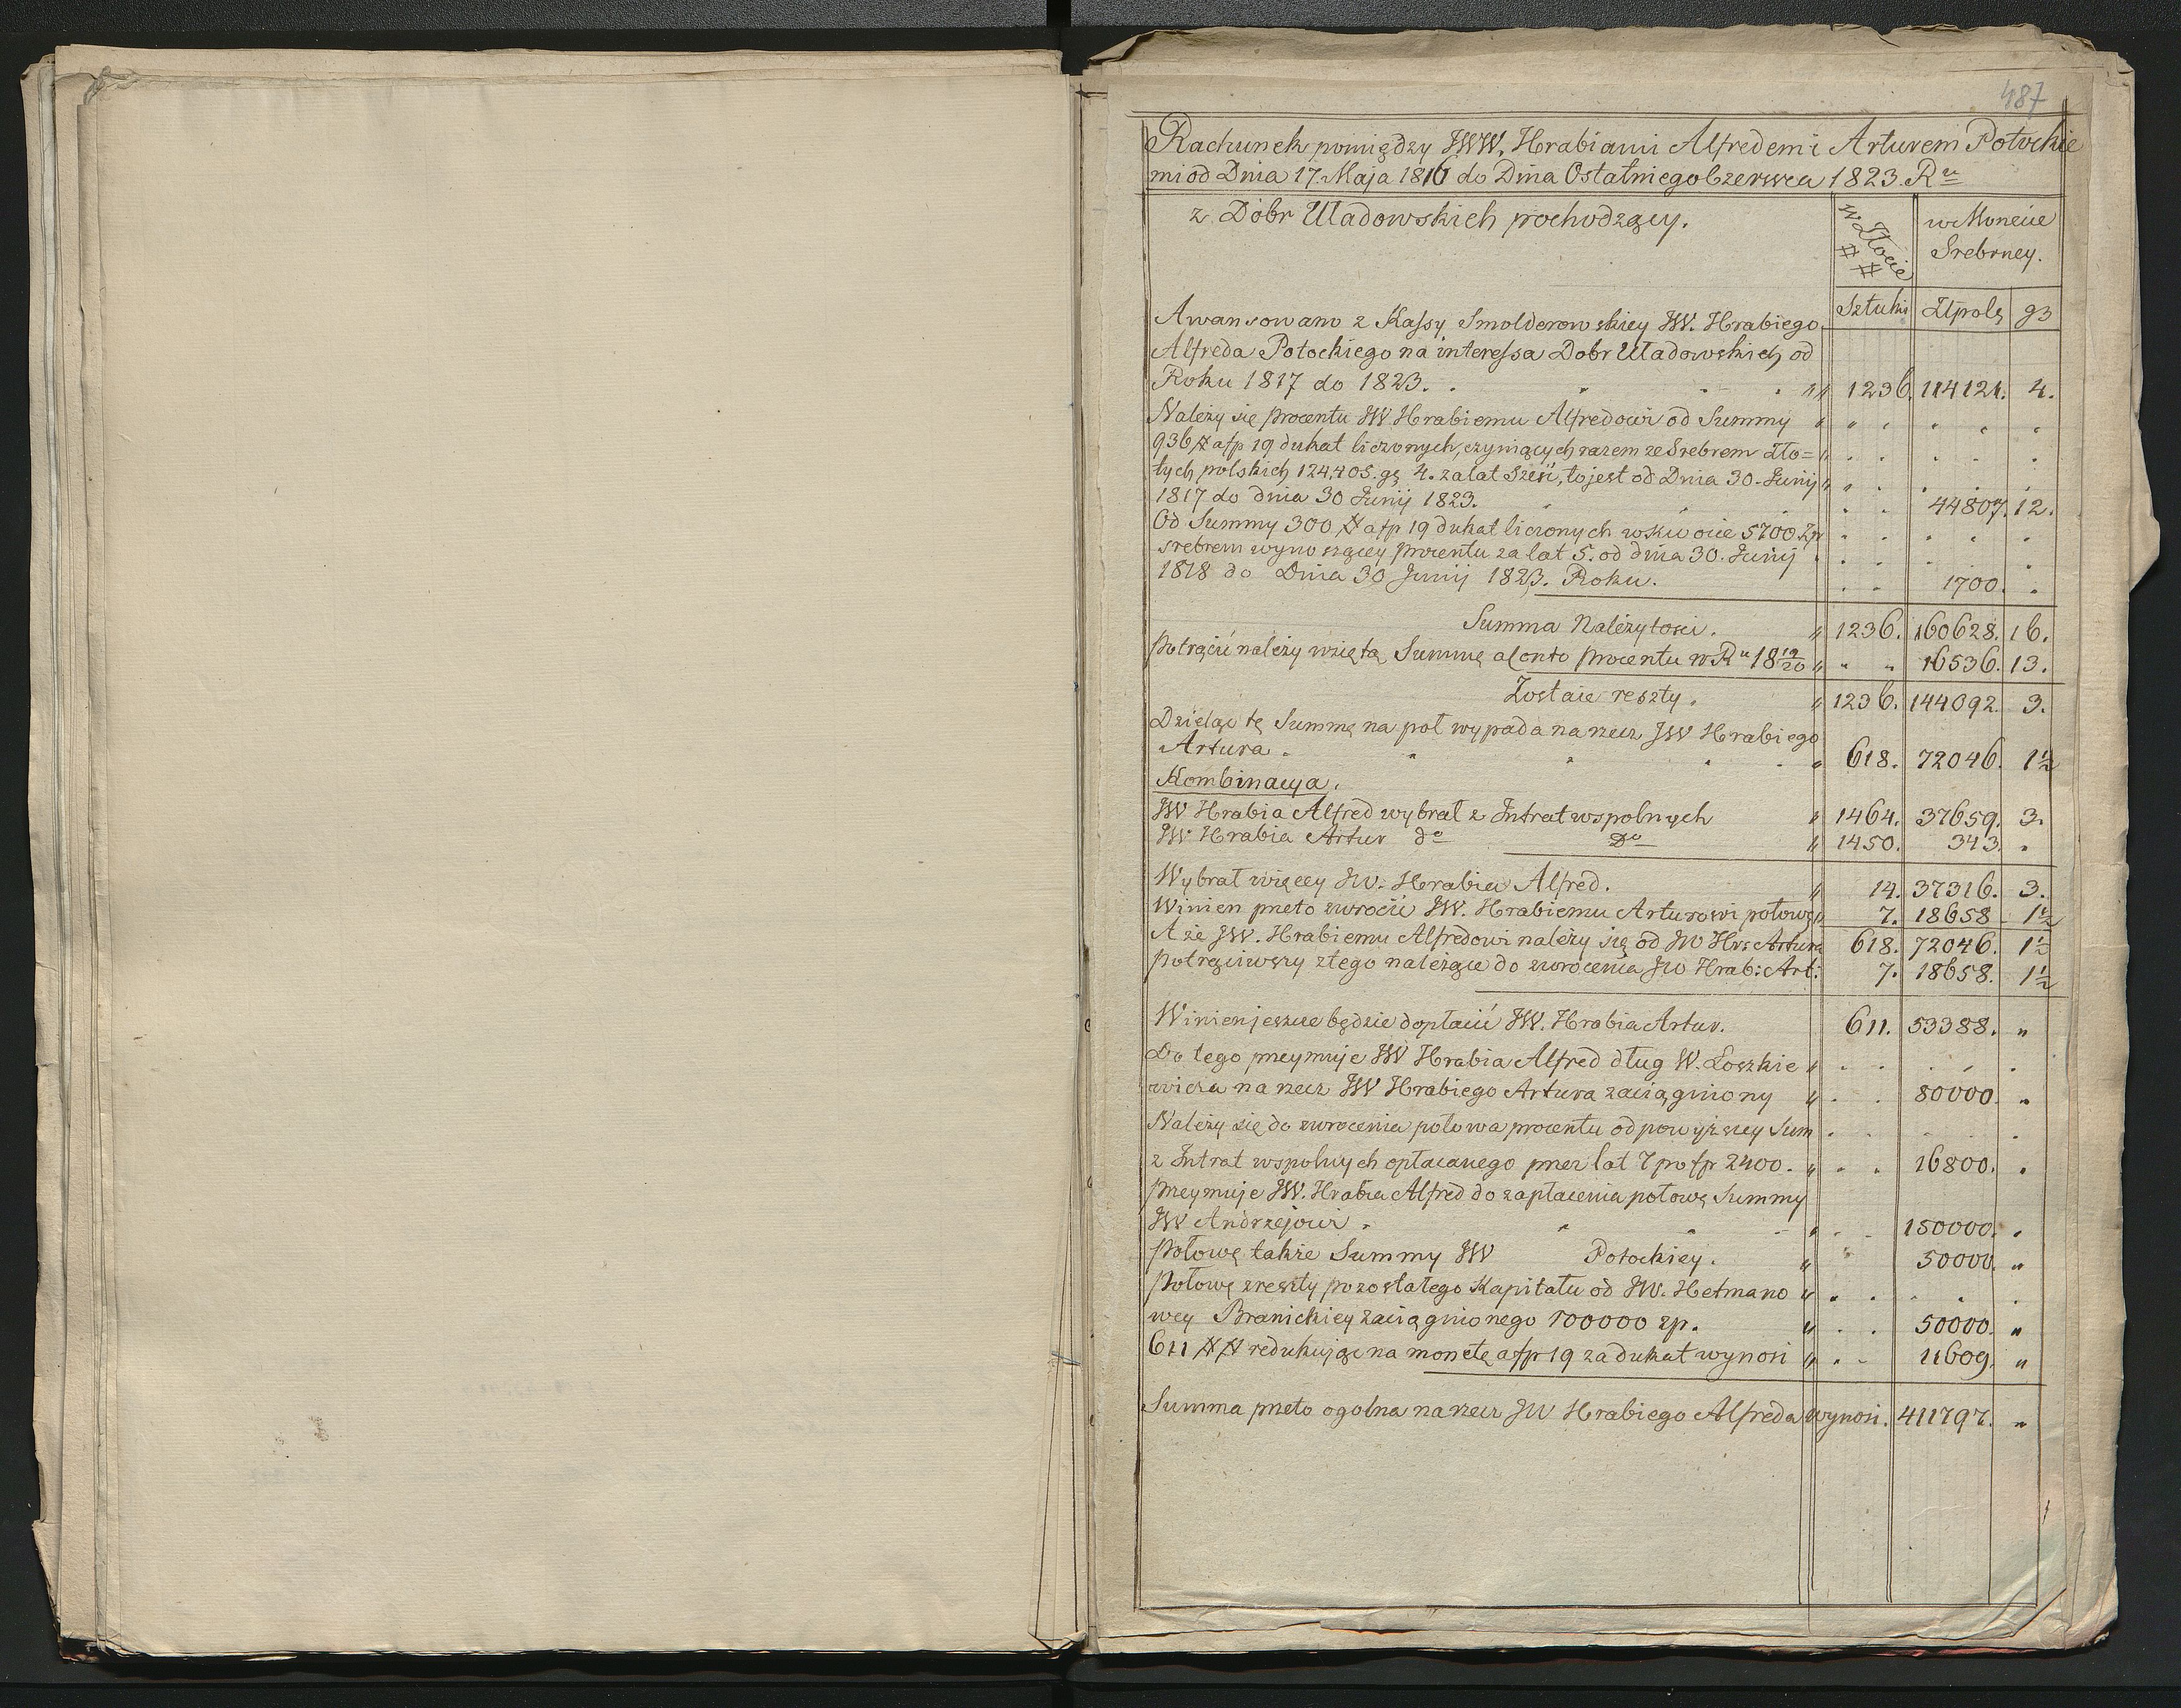 487
Rachunek pomiędzy JWW. Hrabiami Alfredem i Arturem Potockie
mi od Dnia 17. Maja 1816 do Dnia Ostatniego Czerwca 1823. Ru
z Dobr Uładowskich pochodzący.
w Złocie # #
w Monecie Srebrney.
Sztuki Złpols gs
Awansowano z Kassy Smolderowskiey JW. Hrabiego
Alfreda Potockiego na interessa Dobr Uładowskich od
Roku 1817 do 1823. . " " 1236. 114121. 4.
Należy się procentu JW. Hrabiemu Alfredowi od Summy "
936 # a fp 19 dukat liczonych, czyniących razem ze Srebrem Zło= "
tych polskich 124,405. gs 4. za lat Sześć, to jest od Dnia 30. Junij "
1817 do dnia 30 Junij 1823. 44807. 12.
Od Summy 300 # a fp 19 dukat liczonych w kwocie 5700 Zp
srebrem wynoszącey procentu za lat 5. od dnia 30. Junij
1818 do Dnia 30 Junij 1823. Roku. 1700. "
Summa Należytosci. " 1236. 160628. 16.
Potrącić należy wziętą Summę a Conto procentu w Ru 18 19/20 " " " 16536. 13.
Zostaie reszty. " 1236. 144092. 3.
Dzieląc tę Summę na poł wypada na rzecz JW Hrabiego
Artura . " 618. 72046. 1½
Kombinacya.
JW Hrabia Alfred wybrał z Intrat wspolnych " 1464. 37659. 3.
JW Hrabia Artur do Do " 1450. 343. "
Wybrał więcey JW. Hrabia Alfred. " 14. 37316. 3.
Winien przeto zwrocić JW. Hrabiemu Arturowi połowę " 7. 18658 1½
A że JW. Hrabiemu Alfredowi należy się od JW Hrs Artura 618. 72046. 1½
Potrąciwszy z tego należące do zwrocenia JW Hrab: Art: 7. 18658. 1½
Winien jeszcze będzie dopłacić JW. Hrabia Artur. 611. 53388. "
Do tego przeymuje JW Hrabia Alfred dług W. Loszkie "
wicza na rzecz JW Hrabiego Artura zaciągniony " 80000. "
Należy się do zwrocenia połowa procentu od powyższey Sum
z Intrat wspolnych opłacanego przez lat 7 po fp 2400. " 16800. "
Przeymuje JW. Hrabia Alfred do zapłacenia połowę Summy
JW Andrzejowi . 150000. "
Połowę także Summy JW Potockiey. " 50000. "
Połowę z reszty pozostałego Kapitału od JW. Hetmano "
wey Branickiey zaciągnionego 100000 zp. " 50000. "
611 # # redukując na monetę a fp 19 za dukat wynosi " 11609. "
Summa przeto ogolna na rzecz JW Hrabiego Alfreda wynosi. 411797. "